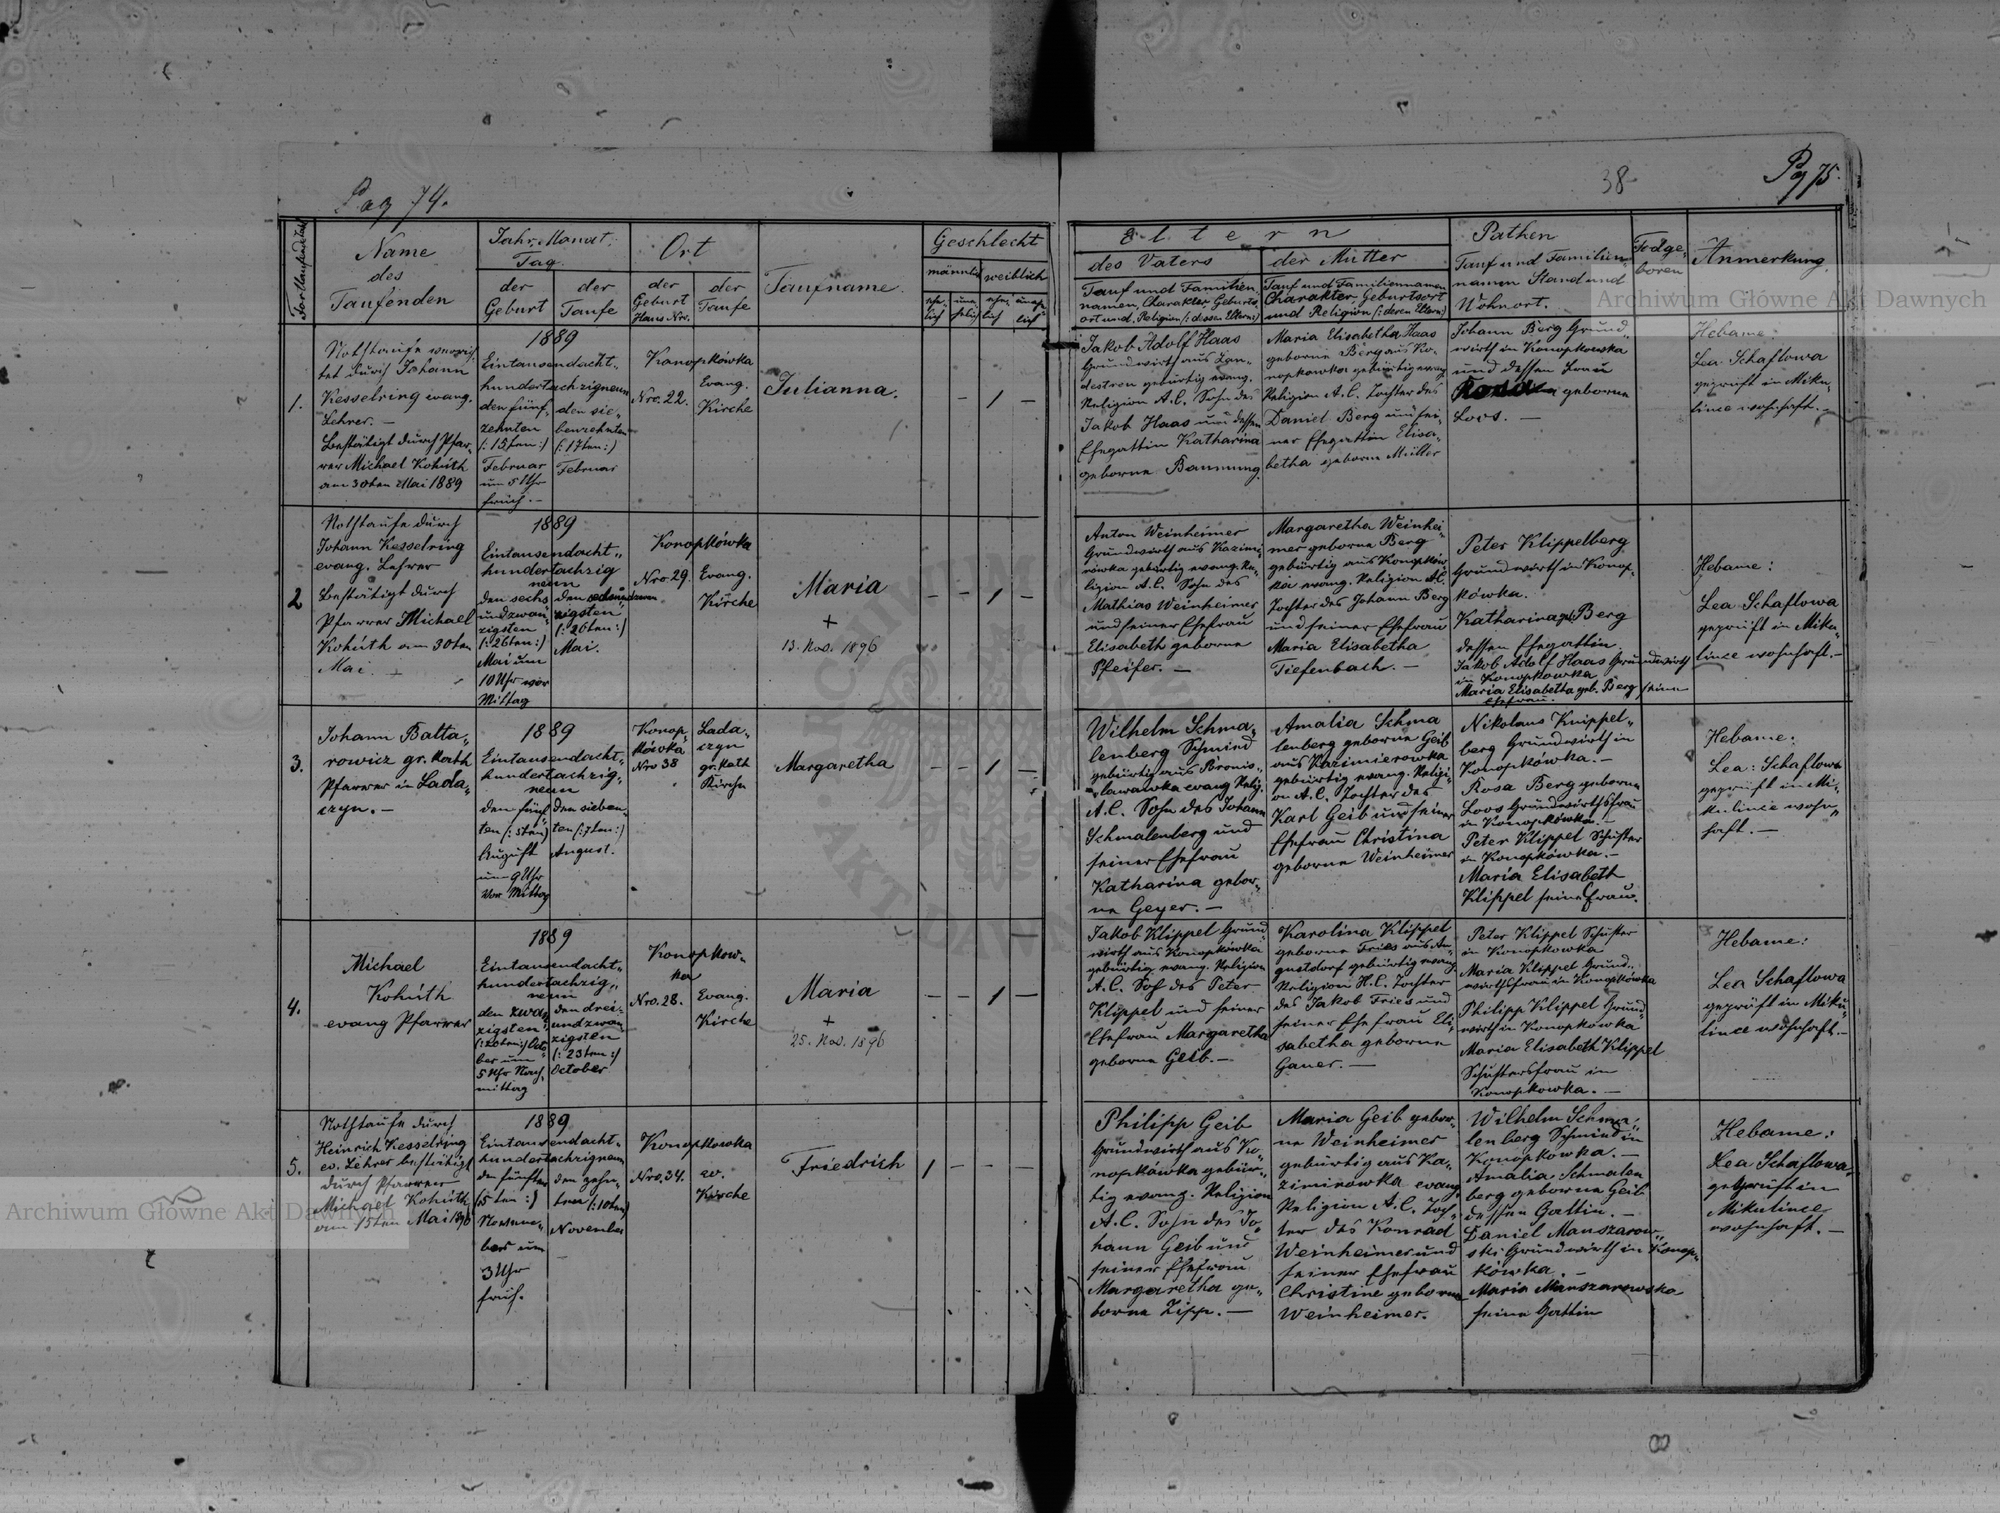 Pag 74.
38
Pag 75.
Archiwum Główne Akt Dawnych
Fortlaufendezahl
Name
des
Taufenden
Jahr, Monat,
Tag
der
Geburt
der
Taufe
Ort
der
Geburt
Haus Nro.
der
Taufe
Taufname.
Geschlecht
männlich
weiblich
ehe-
lich
unehelich
ehe-
lich
uneh-
lich
Eltern
des Vaters
Tauf und Familien
namen, Charakter Geburts
ort und Religion (: dessen Eltern:)
der Mutter
Tauf und Familiennamen
Charakter, Geburtsort
und Religion (: deren Eltern:)
Pathen
Tauf und Familien
namen Stand und
Wohnort.
Todge-
boren
Anmerkung.
1.
Nothtaufe verrich-
tet durch Johann
Kesselring evang.
Lehrer. —
Bestätigt durch Pfar-
rer Michael Kohúth
am 30ten Mai 1889
1889
Eintausendacht-
hundertachzigneun
den fünf-
zehnten
(: 15ten :)
Februar
um 5 Uhr
früh. —
den sie-
benzehnten
(: 17ten :)
Februar
Konopkówka
Nro. 22.
Evang.
Kirche
Julianna.
– 1 –
Jakob Adolf Haas
Grundwirth aus Lan-
destreu gebürtig evang.
Religion A.C. Sohn des
Jakob Haas und dessen
Ehegattin Katharina
geborne Bamnung.
Maria Elisabetha Haas
geborne Berg aus Ko-
nopkowka gebürtig evang
Religion A.C. Tochter des
Daniel Berg und sei-
ner Ehegattin Elisa-
betha geborne Müller
Johann Berg Grund-
wirth in Konopkowka
und dessen Frau
Rosina geborne
Loos. —
Hebame:
Lea Schaflowa
geprüft in Miku-
lince wohnhaft. —
2
Nothtaufe durch
Johann Kesselring
evang. Lehrer
Bestätigt durch
Pfarrer Michael
Kohúth am 30ten
Mai.
1889
Eintausendacht-
hundertachzig
neun
den sechs
undzwan-
zigsten
(: 26ten :)
Mai um
10 Uhr vor
Mittag
den sechsundzwan
zigsten
(: 26ten :)
Mai.
Konopkówka
Nro. 29.
Evang.
Kirche
Maria
+
13. Nov. 1896
– – 1 –
Anton Weinheimer
Grundwirth aus Kazimi-
rówka gebürtig evang. Re-
ligion A.C. Sohn des
Mathias Weinheimer
und seiner Ehefrau
Elisabeth geborne
Pfeifer. —
Margaretha Weinhei-
mer geborne Berg
gebürtig aus Konopków-
ka evang. Religion A.C.
Tochter des Johann Berg
und seiner Ehefrau
Maria Elisabetha
Tiefenbach. —
Peter Klippelberg
Grundwirth in Konop-
kówka.
Katharina Berg
dessen Ehegattin
Jakob Adolf Haas Grundwirth
in Konopkowka
Maria Elisabetha geb. Berg seine
Ehefrau.
Hebame:
Lea Schaflowa
geprüft in Miku-
lince wohnhaft. —
3.
Johann Balta-
rowicz gr. Kath
Pfarrer in Lada-
czyn. —
1889
Eintausendacht-
hundertachzig-
neun
den fünf-
ten (: 5ten)
August
um 9 Uhr
Vor Mittag
den sieben-
ten (: 7ten :)
August.
Konop-
kówka
Nro 38
Lada-
czyn
gr. Kath
Kirche
Margaretha
– – 1 –
Wilhelm Schma-
lenberg Schmied
gebürtig aus Bronis-
lawowka evang Relig.
A.C. Sohn des Johann
Schmalenberg und
seiner Ehefrau
Katharina gebor-
ne Geyer. —
Amalia Schma
lenberg geborne Geib
aus Kazimierowka
gebürtig evang. Religi-
on A.C. Tochter des
Karl Geib und seiner
Ehefrau Christina
geborne Weinheimer
Nikolaus Knippel-
berg Grundwirth in
Konopkówka. —
Rosa Berg geborne
Loos Grundwirthsfrau
in Konopkówka. —
Peter Klippel Schuster
in Konopkówka. —
Maria Elisabeth
Klippel seine Frau.
Hebame:
Lea: Schaflowa
geprüft in Mi-
kulince wohn-
haft. —
4.
Michael
Kohúth
evang Pfarrer
1889
Eintausendacht-
hundertachzig-
neun
den zwan
zigsten
(: 20ten :) Octo-
ber um
5 Uhr Nach-
mittag
den drei-
undzwan
zigsten
(: 23ten :)
October
Konopkow-
ka
Nro. 28.
Evang.
Kirche
Maria
+
25. Nov. 1896
– – 1 –
Jakob Klippel Grund-
wirth aus Konopkówka
gebürtig evang. Religion
A.C. Sohn des Peter
Klippel und seiner
Ehefrau Margaretha
geborne Geib. —
Karolina Klippel
geborne Fries aus Au-
gustdorf gebürtig evang.
Religion H.C. Tochter
des Jakob Fries und
seiner Ehefrau Eli-
sabetha geborne
Gauer. —
Peter Klippel Schuster
in Konopkowka
Maria Klippel Grund-
wirthsfrau in Konopkówka
Philipp Klippel Grund-
wirth in Konopkówka
Maria Elisabeth Klippel
Schustersfrau in
Konopkowka. —
Hebame:
Lea Schaflowa
geprüft in Miku-
lince wohnhaft. —
5.
Nothtaufe durch
Heinrich Kesselring
ev. Lehrer bestätigt
durch Pfarrer
Michael Kohúth
am 15ten Mai 1890
1889
Eintausendacht-
hundertachzigneun
den fünften
(5ten :)
Novem-
ber um
3 Uhr
früh.
den zehn-
ten (: 10ten)
November
Konopkowka
Nro. 34.
ev.
Kirche
Friedrich
1 – – –
Philipp Geib
Grundwirth aus Ko-
nopkówka gebür-
tig evang. Religion
A.C. Sohn des Jo-
hann Geib und
seiner Ehefrau
Margaretha ge-
borne Zipp. —
Maria Geib gebor-
ne Weinheimer
gebürtig aus Ka-
zimirówka evang.
Religion A.C. Toch-
ter des Konrad
Weinheimer und
seiner Ehefrau
Christine geborne
Weinheimer.
Wilhelm Schma-
lenberg Schmied in
Konopkowka. —
Amalia Schmalen
berg geborne Geib
dessen Gattin. —
Daniel Manszarow-
ski Grundwirth in Konop-
kówka. —
Maria Manszarowska
seine Gattin
Hebame:
Lea Schaflowa
geprüft in
Mikulince
wohnhaft. —
Archiwum Główne Akt Dawnych